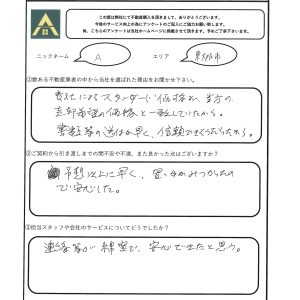 この度は弊社にて不動産購入を頂きまして、ありがとうございます。
今後のサービス向上の為にアンケートのご記入にご協力お願い致します。
尚、こちらのアンケートは当社ホームページに掲載させて頂きます、予めご了承下さいませ。
ニックネーム A エリア 東大阪市
①数ある不動産業者の中から当社を選ばれた理由をお聞かせ下さい。
貴社によるスタンダード価格が、当方の
売却希望の価格と一致していたから。
書類等の送付も早く、信頼がおけると
②ご契約から引き渡しまでの間不安や不満、また良かった点はございますか?
予想以上に早く、買い手がみつかったの
で安心した。
③担当スタッフや会社のサービスについてどうでしたか?
連絡等が綿密で、安心できたと思う。